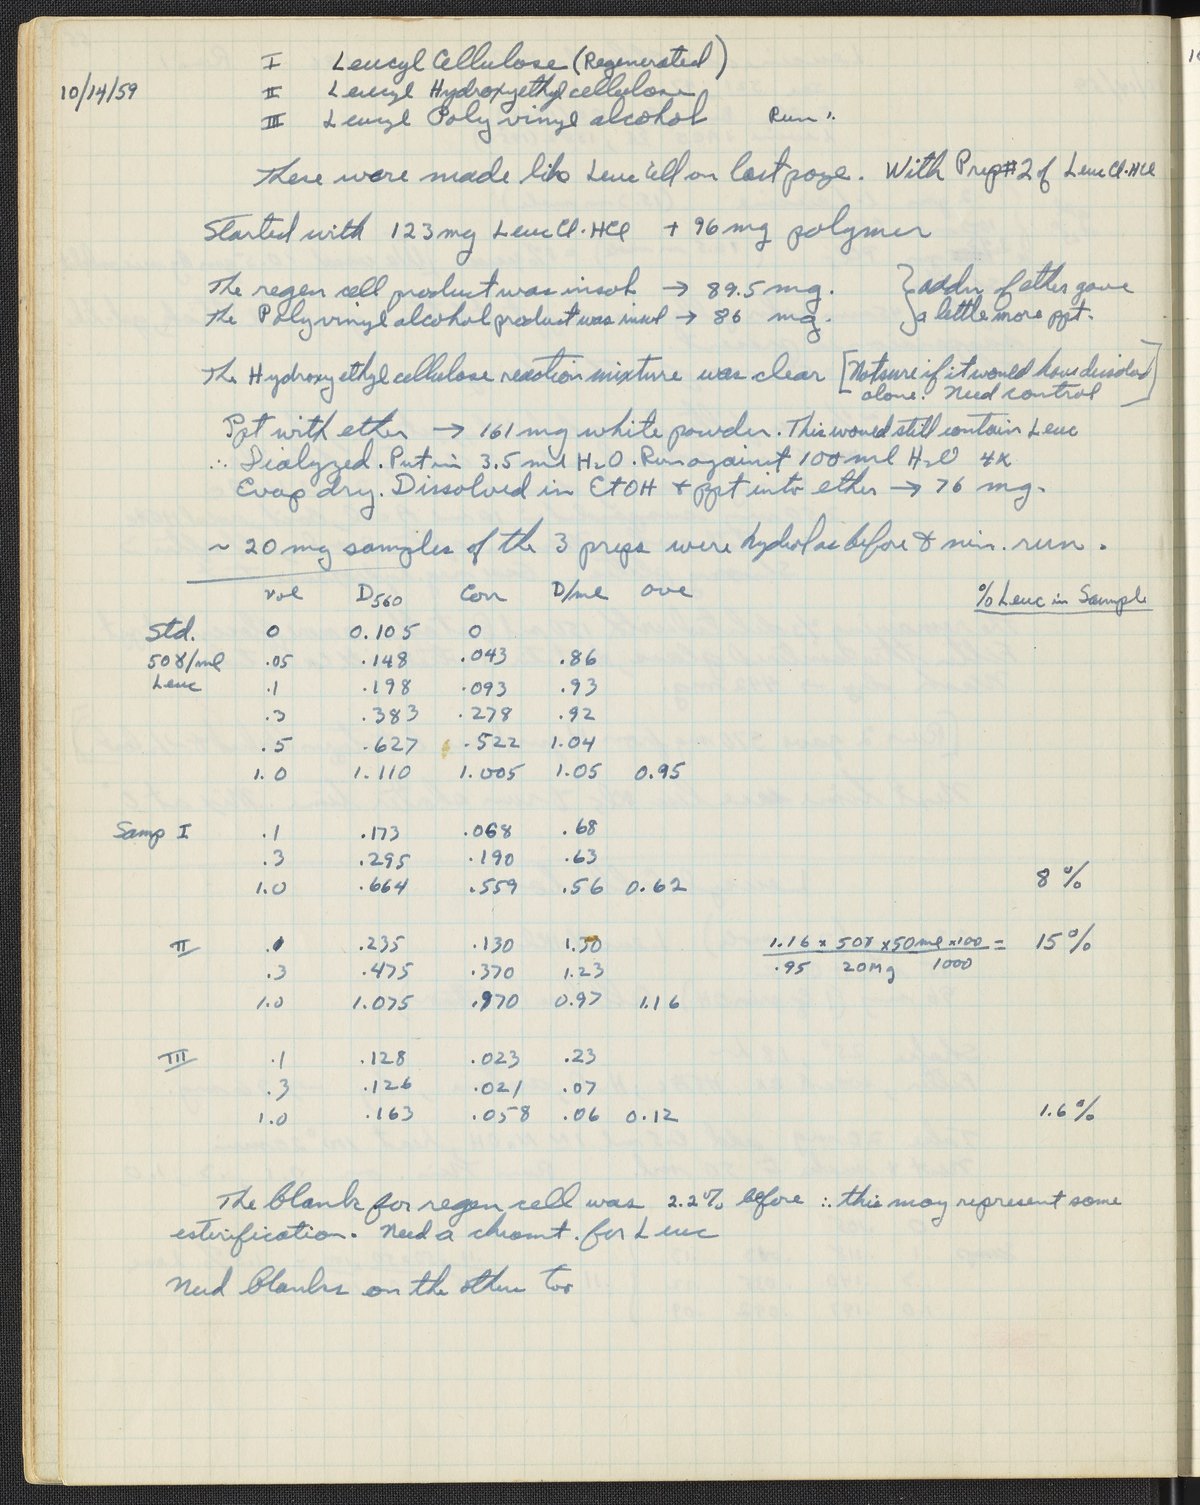 I Leucyl Cellulose (Regenerated)
10/14/59 II Leucyl Hydroxyethyl cellulose
III Leucyl Polyvinyl alcohol Run 1.
These were made like Leuc Cell on last page. With Prep #2 of Leuc Cl·HCl
Started with 123 mg Leuc Cl·HCl + 96 mg polymer
The regen cell product was insol → 89.5 mg. } addn of ether gave
The Polyvinyl alcohol product was insol → 86 mg. } a little more ppt.
The Hydroxyethyl cellulose reaction mixture was clear [Not sure if it would have dissolved
alone. Need control]
Ppt with ether → 161 mg white powder. This would still contain Leuc
∴ Dialyzed. Put in 3.5 ml H2O. Run against 100 ml H2O 4x
Evap dry. Dissolved in EtOH + ppt into ether → 76 mg.
~ 20 mg samples of the 3 preps were hydrol as before & nin. run.
vol D560 Corr D/ml ave % Leuc in Sample
Std. 0 0.105 0
50γ/ml .05 .148 .043 .86
Leuc .1 .198 .093 .93
.3 .383 .278 .92
.5 .627 .522 1.04
1.0 1.110 1.005 1.05 0.95
Samp I .1 .173 .068 .68
.3 .295 .190 .63
1.0 .664 .559 .56 0.62 8%
II .1 .235 .130 1.30 1.16 x 50γ x 50ml x 100 = 15%
.3 .475 .370 1.23 .95 20Mg 1000
1.0 1.075 .970 0.97 1.16
III .1 .128 .023 .23
.3 .126 .021 .07
1.0 .163 .058 .06 0.12 1.6%
The blank for regen cell was 2.2% before ∴ this may represent some
esterification. Need a chromt. for Leuc
Need blanks on the others too